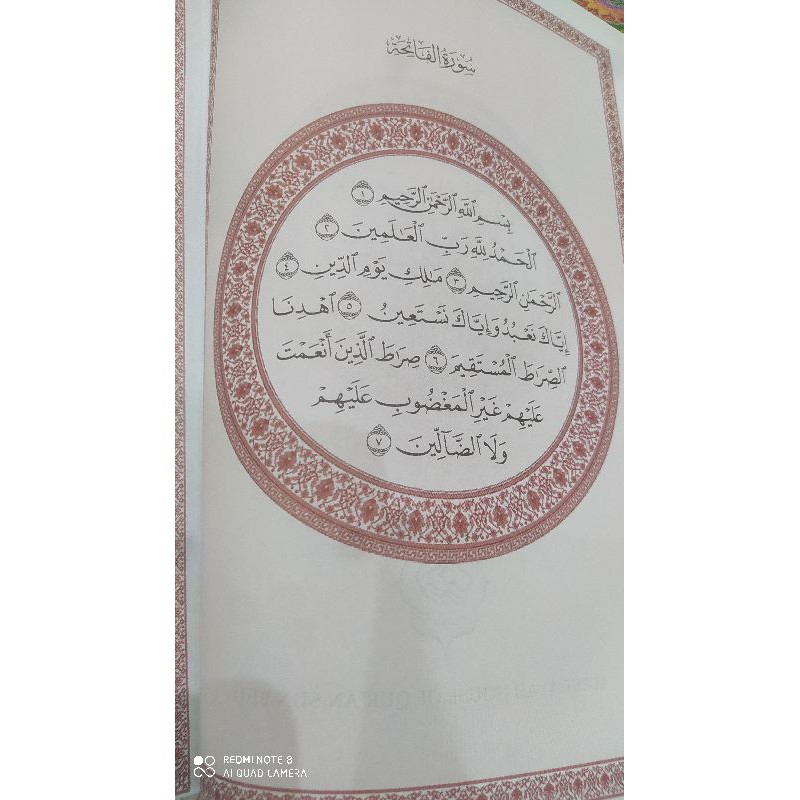 سُورَةُ الفَاتِحَةِ
بِسْمِ ٱللَّهِ ٱلرَّحْمَٰنِ ٱلرَّحِيمِ ١
ٱلْحَمْدُ لِلَّهِ رَبِّ ٱلْعَٰلَمِينَ ٢
ٱلرَّحْمَٰنِ ٱلرَّحِيمِ ٣ مَٰلِكِ يَوْمِ ٱلدِّينِ ٤
إِيَّاكَ نَعْبُدُ وَإِيَّاكَ نَسْتَعِينُ ٥ ٱهْدِنَا
ٱلصِّرَٰطَ ٱلْمُسْتَقِيمَ ٦ صِرَٰطَ ٱلَّذِينَ أَنْعَمْتَ
عَلَيْهِمْ غَيْرِ ٱلْمَغْضُوبِ عَلَيْهِمْ
وَلَا ٱلضَّآلِّينَ ٧
REDMI NOTE 8
AI QUAD CAMERA